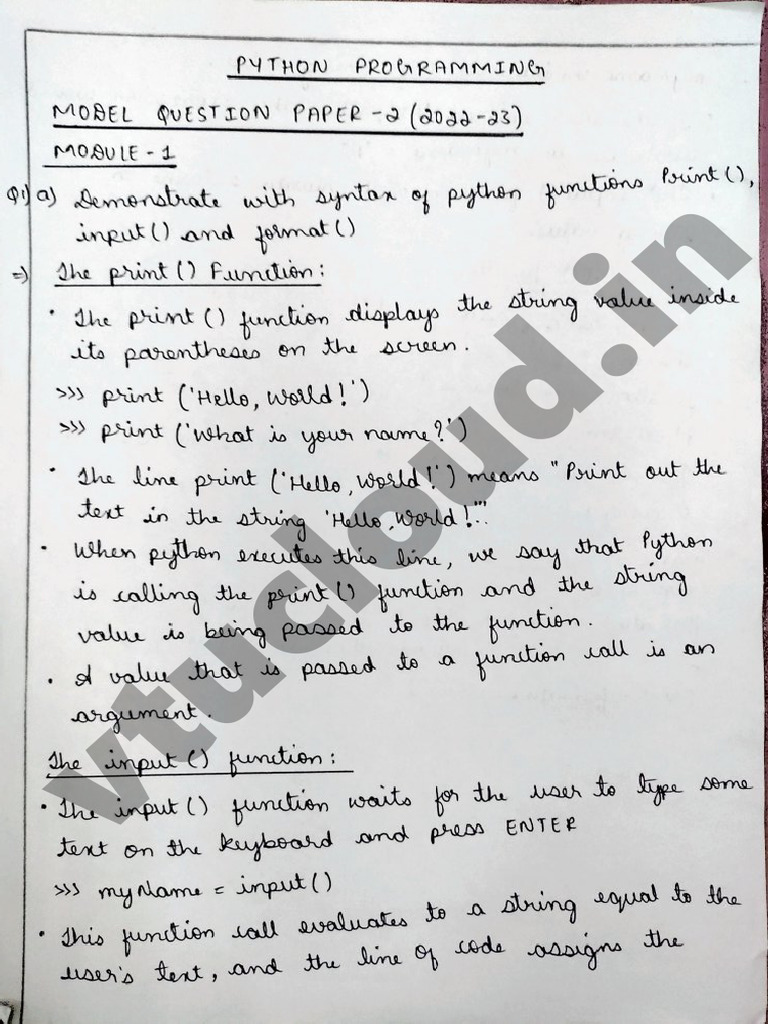 PYTHON PROGRAMMING
MODEL QUESTION PAPER -2 (2022-23)
MODULE-1
Q1) a) Demonstrate with syntax of python functions Print(),
input() and format()
=) The print() Function:
• The print() function displays the string value inside
its parentheses on the screen.
>>> print ('Hello, World!')
>>> print ('What is your name?')
• The line print ('Hello, World!') means "Print out the
text in the string 'Hello, World!'".
• When python executes this line, we say that Python
is calling the print() function and the string
value is being passed to the function.
• A value that is passed to a function call is an
argument.
The input() function:
• The input() function waits for the user to type some
text on the keyboard and press ENTER
>>> myName = input()
• This function call evaluates to a string equal to the
user's text, and the line of code assigns the
vtucloud.in